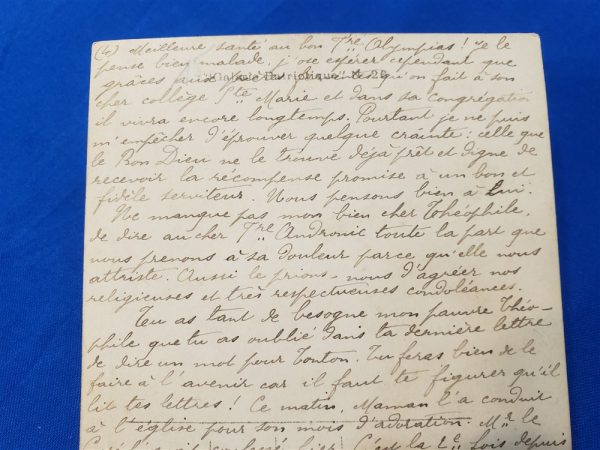 (4) Meilleure santé au bon Fre Olympias! Je le
pense bien malade, j'ose espérer cependant que
grâces aux qu'on fait à son
cher collège Ste Marie et dans sa congrégation
il vivra encore longtemps. Pourtant je ne puis
m'empêcher d'éprouver quelque crainte: celle que
le Bon Dieu ne le trouve déjà prêt et digne de
recevoir la récompense promise à un bon et
fidèle serviteur. Nous pensons bien à Lui.
Ne manque pas mon bien cher Théophile,
de dire au cher Fre Andronic toute la part que
nous prenons à sa douleur parce qu'elle nous
attriste. Aussi le prions-nous d'agréer nos
religieuses et très respectueuses condoléances.
Tu as tant de besogne mon pauvre Théo-
phile que tu as oublié dans ta dernière lettre
de dire un mot pour Tonton. Tu feras bien de le
faire à l'avenir car il faut te figurer qu'il
lit tes lettres! Ce matin, Maman l'a conduit
à l'église pour son mois d'adoration. Mr le
hier. C'est la 2e fois depuis